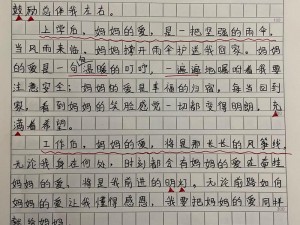 鼓励总伴我左右。
上学后，妈妈的爱，是一把坚强的雨伞。
当风雨来临，妈妈撑开雨伞护送我回家。妈妈
的爱是一句句温暖的叮咛，一遍遍地嘱咐着我要
注意安全；妈妈的爱是幸福的海洋，每当回到
家，看到妈妈的笑脸感觉一切都变得明朗，充
满着希望。
工作后，妈妈的爱，将是那长长的风筝线，
无论我身在何处，时刻都会有妈妈的爱在牵挂
妈妈的爱，将是我前进的明灯。无论前路如何
妈妈的爱让我懂得感恩，我要把妈妈的爱同样